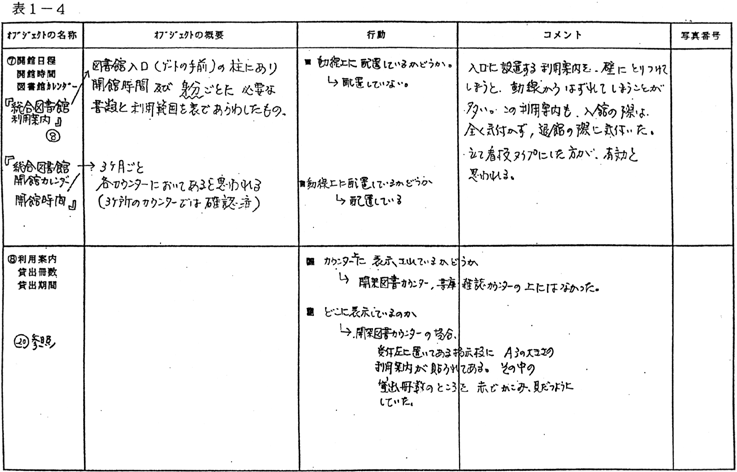 表1－4
オブジェクトの名称
オブジェクトの概要
行動
コメント
写真番号
⑦開館日程
開館時間
図書館カレンダー
『総合図書館
利用案内』
⑧
図書館入口(ゲートの手前)の柱にあり
開館時間 及び 身分ごとに 必要な
書類と利用範囲を表であらわしたもの。
■ 動線上に配置しているかどうか。
↳ 配置していない。
入口に設置する利用案内を、壁にとりつけて
しまうと、動線からはずれてしまうことが
多い。この利用案内も、入館の際は、
全く気付かず、退館の際に気付いた。
立て看板タイプにした方が、有効と
思われる。
『総合図書館
開館カレンダー
開館時間』
→ 3ヶ月ごと
各カウンターにおいてあると思われる
(3ヶ所のカウンターでは確認済)
■動線上に配置しているかどうか
↳ 配置している
⑧利用案内
貸出冊数
貸出期間
⑳参照
■ カウンター上に表示されているかどうか
↳ 開架図書カウンター, 書庫・雑誌カウンターの上にはなかった。
■ どこに表示しているのか
↳ 開架図書カウンターの場合、
受付左に置いてある掲示板に A3の大きさの
利用案内が貼られてある。その中の
貸出冊数のところを 赤でかこみ、見だつように
していた。